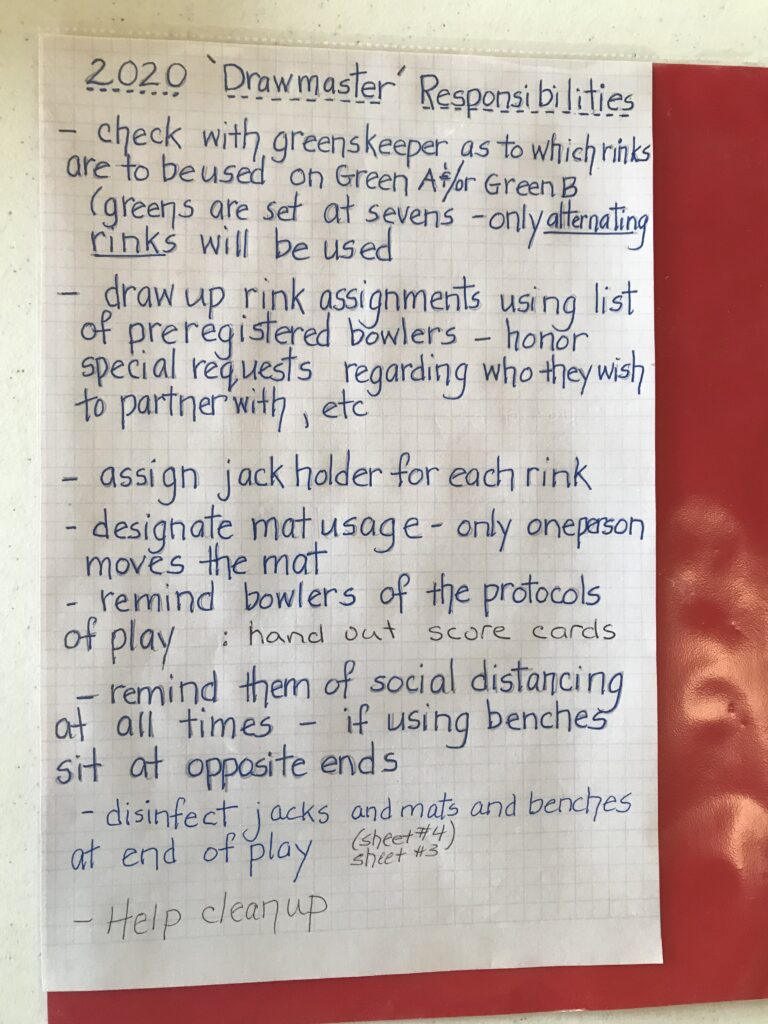 2020 'Drawmaster' Responsibilities
- check with greenskeeper as to which rinks
are to be used on Green A &/or Green B
(greens are set at sevens - only alternating
rinks will be used
- draw up rink assignments using list
of preregistered bowlers - honor
special requests regarding who they wish
to partner with, etc
- assign jack holder for each rink
- designate mat usage - only one person
moves the mat
- remind bowlers of the protocols
of play : hand out score cards
- remind them of social distancing
at all times - if using benches
sit at opposite ends
- disinfect jacks and mats and benches
at end of play (sheet #4)
sheet #3
- Help clean up